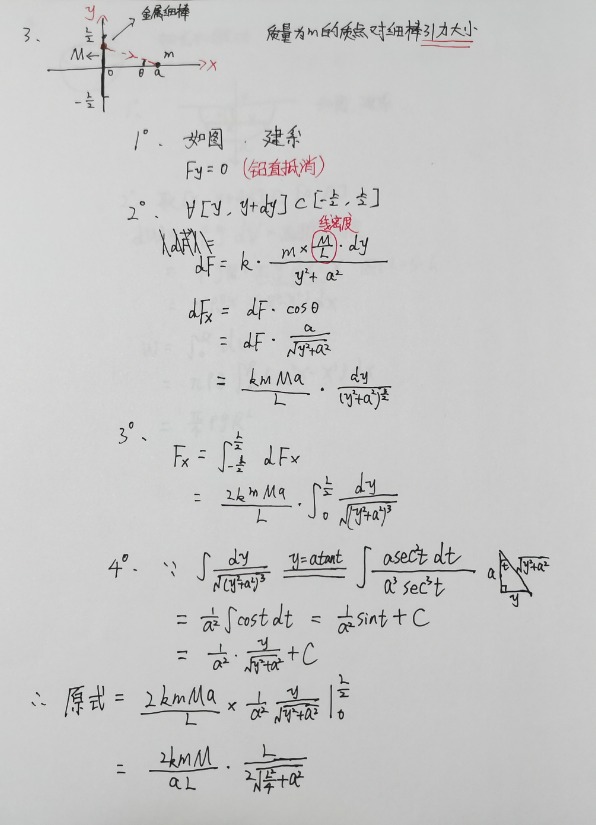 3.
y
金属细棒
L/2
M
m
x
o
θ
a
-L/2
质量为m的质点对细棒引力大小
1°. 如图. 建系
Fy = 0 (铅直抵消)
2°. ∀[y, y+dy] ⊂ [-L/2, L/2]
线密度
dF = k · (m × M/L · dy)/(y²+a²)
dFx = dF · cosθ
= dF · a/√(y²+a²)
= kmMa/L · dy/(y²+a²)^(3/2)
3°.
Fx = ∫_{-L/2}^{L/2} dFx
= 2kmMa/L · ∫_0^{L/2} dy/√((y²+a²)³)
4°. ∵ ∫ dy/√((y²+a²)³) y=atant ∫ asec²t dt/(a³sec³t)
a
t
√(y²+a²)
y
= 1/a² ∫cost dt = 1/a² sint + C
= 1/a² · y/√(y²+a²) + C
∴ 原式 = 2kmMa/L × 1/a² y/√(y²+a²) |_0^{L/2}
= 2kmM/(aL) · L/(2√(L²/4+a²))